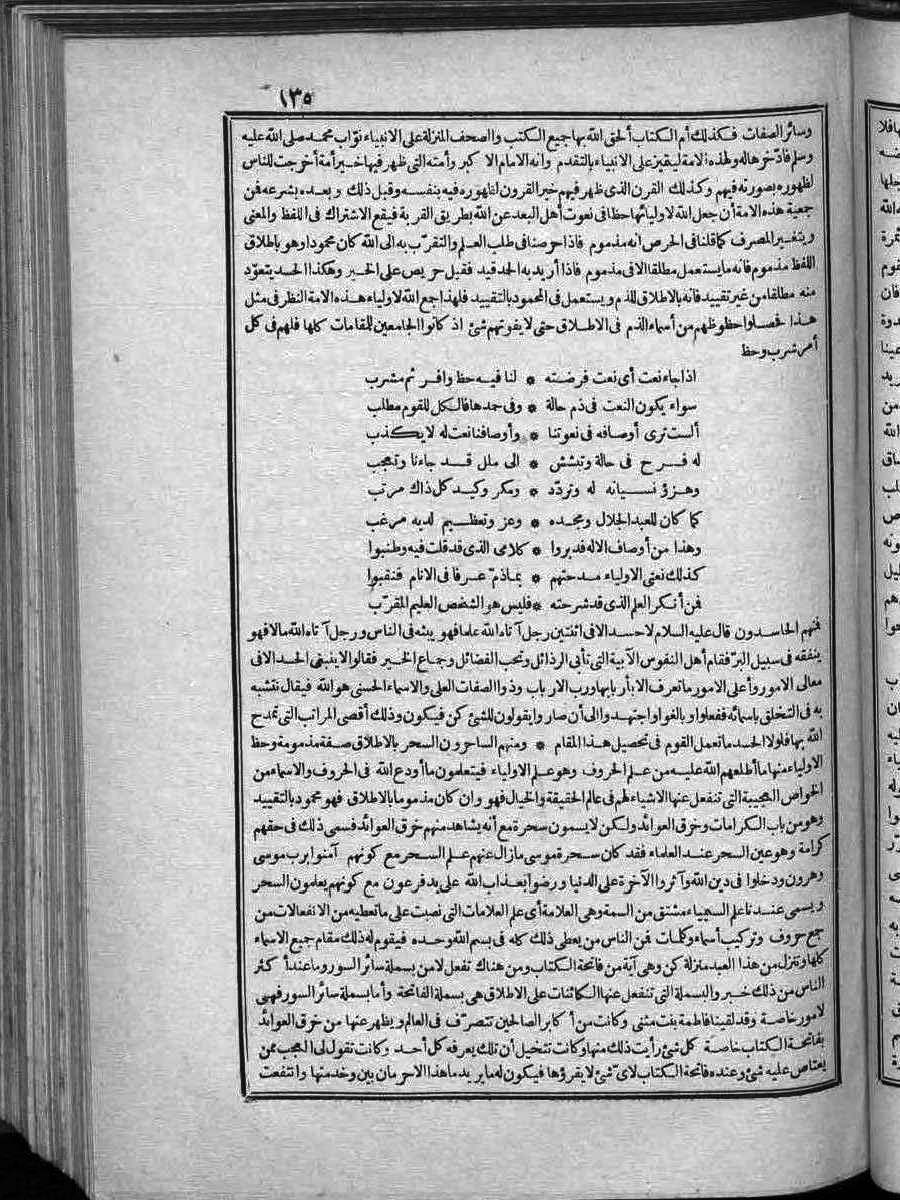 ١٣٥
وسائر الصفات فكذلك أم الكتاب ألحق الله بها جميع الكتب والصحف المنزلة على الانبياء نوّاب محمد صلى الله عليه
وسلم فادّخرها له ولهذه الامة ليتميز على الانبياء بالتقدم وانه الامام الاكبر وأمته التى ظهر فيها خير أمة أخرجت للناس
لظهوره بصورته فيهم وكذلك القرن الذى ظهر فيهم خير القرون لظهوره فيه بنفسه وقبل ذلك وبعده بشرعه فمن
جمعية هذه الامة أن جعل الله لاوليائها حظا فى نعوت أهل البعد عن الله بطريق القربة فيقع الاشتراك فى اللفظ والمعنى
ويتغير المصرف كما قلنا فى الحرص انه مذموم فاذا حرصنا فى طلب العلم والتقرّب به الى الله كان محمودا وهو باطلاق
اللفظ مذموم فانه ما يستعمل مطلقا الا فى مذموم فاذا أريد به الحمد قيد فقيل حريص على الخير وهكذا الحسد يتعوّذ
منه مطلقا من غير تقييد فانه بالاطلاق للذم ويستعمل فى المحمود بالتقييد فلهذا جمع الله لاولياء هذه الامة النظر فى مثل
هذا فحصلوا حظوظهم من أسماء الذم فى الاطلاق حتى لا يفوتهم شئ اذ كانوا الجامعين للمقامات كلها فلهم فى كل
أمر شرب وحظ
اذا جاء نعت أى نعت فرضته * لنا فيه حظ وافر ثم مشرب
سواء يكون النعت فى ذم حالة * وفى حمدها فالكل للقوم مطلب
ألست ترى أوصافه فى نعوتنا * وأوصافنا نعت له لا يكذب
له فرح فى حالة وتبشش * الى ملل قد جاءنا وتعجب
وهزؤ نسيانه له وتردّد * ومكر وكيد كل ذاك مرتب
كما كان للعبد الجلال ومجده * وعز وتعظيم لديه مرغب
وهذا من أوصاف الاله فدبروا * كلامى الذى قد قلت فيه وطنبوا
كذلك نعتى الاولياء مدحتهم * بما ذمّ عرفا فى الانام فنقبوا
فمن أنكر العلم الذى قد شرحته * فليس هو الشخص العليم المقرّب
فمنهم الحاسدون قال عليه السلام لا حسد الا فى اثنتين رجل آتاه الله علما فهو يبثه فى الناس ورجل آتاه الله مالا فهو
ينفقه فى سبيل البرّ فقام أهل النفوس الآبية التى تأبى الرذائل وتحب الفضائل وجماع الخير فقالوا لا ينبغى الحسد الا فى
معالى الامور وأعلى الامور ما تعرف الارباب بها ورب الارباب وذو الصفات العلى والاسماء الحسنى هو الله فيقال نتشبه
به فى التخلق باسمائه ففعلوا وبالغوا واجتهدوا الى أن صاروا يقولون للشئ كن فيكون وذلك أقصى المراتب التى تمدح
الله بها فلولا الحسد ما تعمل القوم فى تحصيل هذا المقام * ومنهم الساحرون السحر بالاطلاق صفة مذمومة وحظ
الاولياء منها ما أطلعهم الله عليه من علم الحروف وهو علم الاولياء فيتعلمون ما أودع الله فى الحروف والاسماء من
الخواص العجيبة التى تنفعل عنها الاشياء لهم فى عالم الحقيقة والخيال فهو وان كان مذموما بالاطلاق فهو محمود بالتقييد
وهو من باب الكرامات وخرق العوائد ولكن لا يسمون سحرة مع أنه يشاهد منهم خرق العوائد فسمى ذلك فى حقهم
كرامة وهو عين السحر عند العلماء فقد كان سحرة موسى ما زال عنهم علم السحر مع كونهم آمنوا برب موسى
وهرون ودخلوا فى دين الله وآثروا الآخرة على الدنيا ورضوا بعذاب الله على يد فرعون مع كونهم يعلمون السحر
ويسمى عندنا علم السيمياء مشتق من السمة وهى العلامة أى علم العلامات التى نصبت على ما تعطيه من الانفعالات من
جمع حروف وتركيب أسماء وكلمات فمن الناس من يعطى ذلك كله فى بسم الله وحده فيقوم له ذلك مقام جميع الاسماء
كلها وتنزل من هذا العبد منزلة كن وهى آية من فاتحة الكتاب ومن هناك تفعل لا من بسملة سائر السور وما عند أكثر
الناس من ذلك خبر والبسملة التى تنفعل عنها الكائنات على الاطلاق هى بسملة الفاتحة وأما بسملة سائر السور فهى
لامور خاصة وقد لقينا فاطمة بنت مثنى وكانت من أكابر الصالحين تتصرّف فى العالم ويظهر عنها من خرق العوائد
بفاتحة الكتاب خاصة كل شئ رأيت ذلك منها وكانت تتخيل أن تلك يعرفه كل أحد وكانت تقول لى العجب ممن
يعتاص عليه شئ وعنده فاتحة الكتاب لاى شئ لا يقرؤها فيكون له ما يريد ما هذا الاحرمان بين وخدمتها وانتفعت